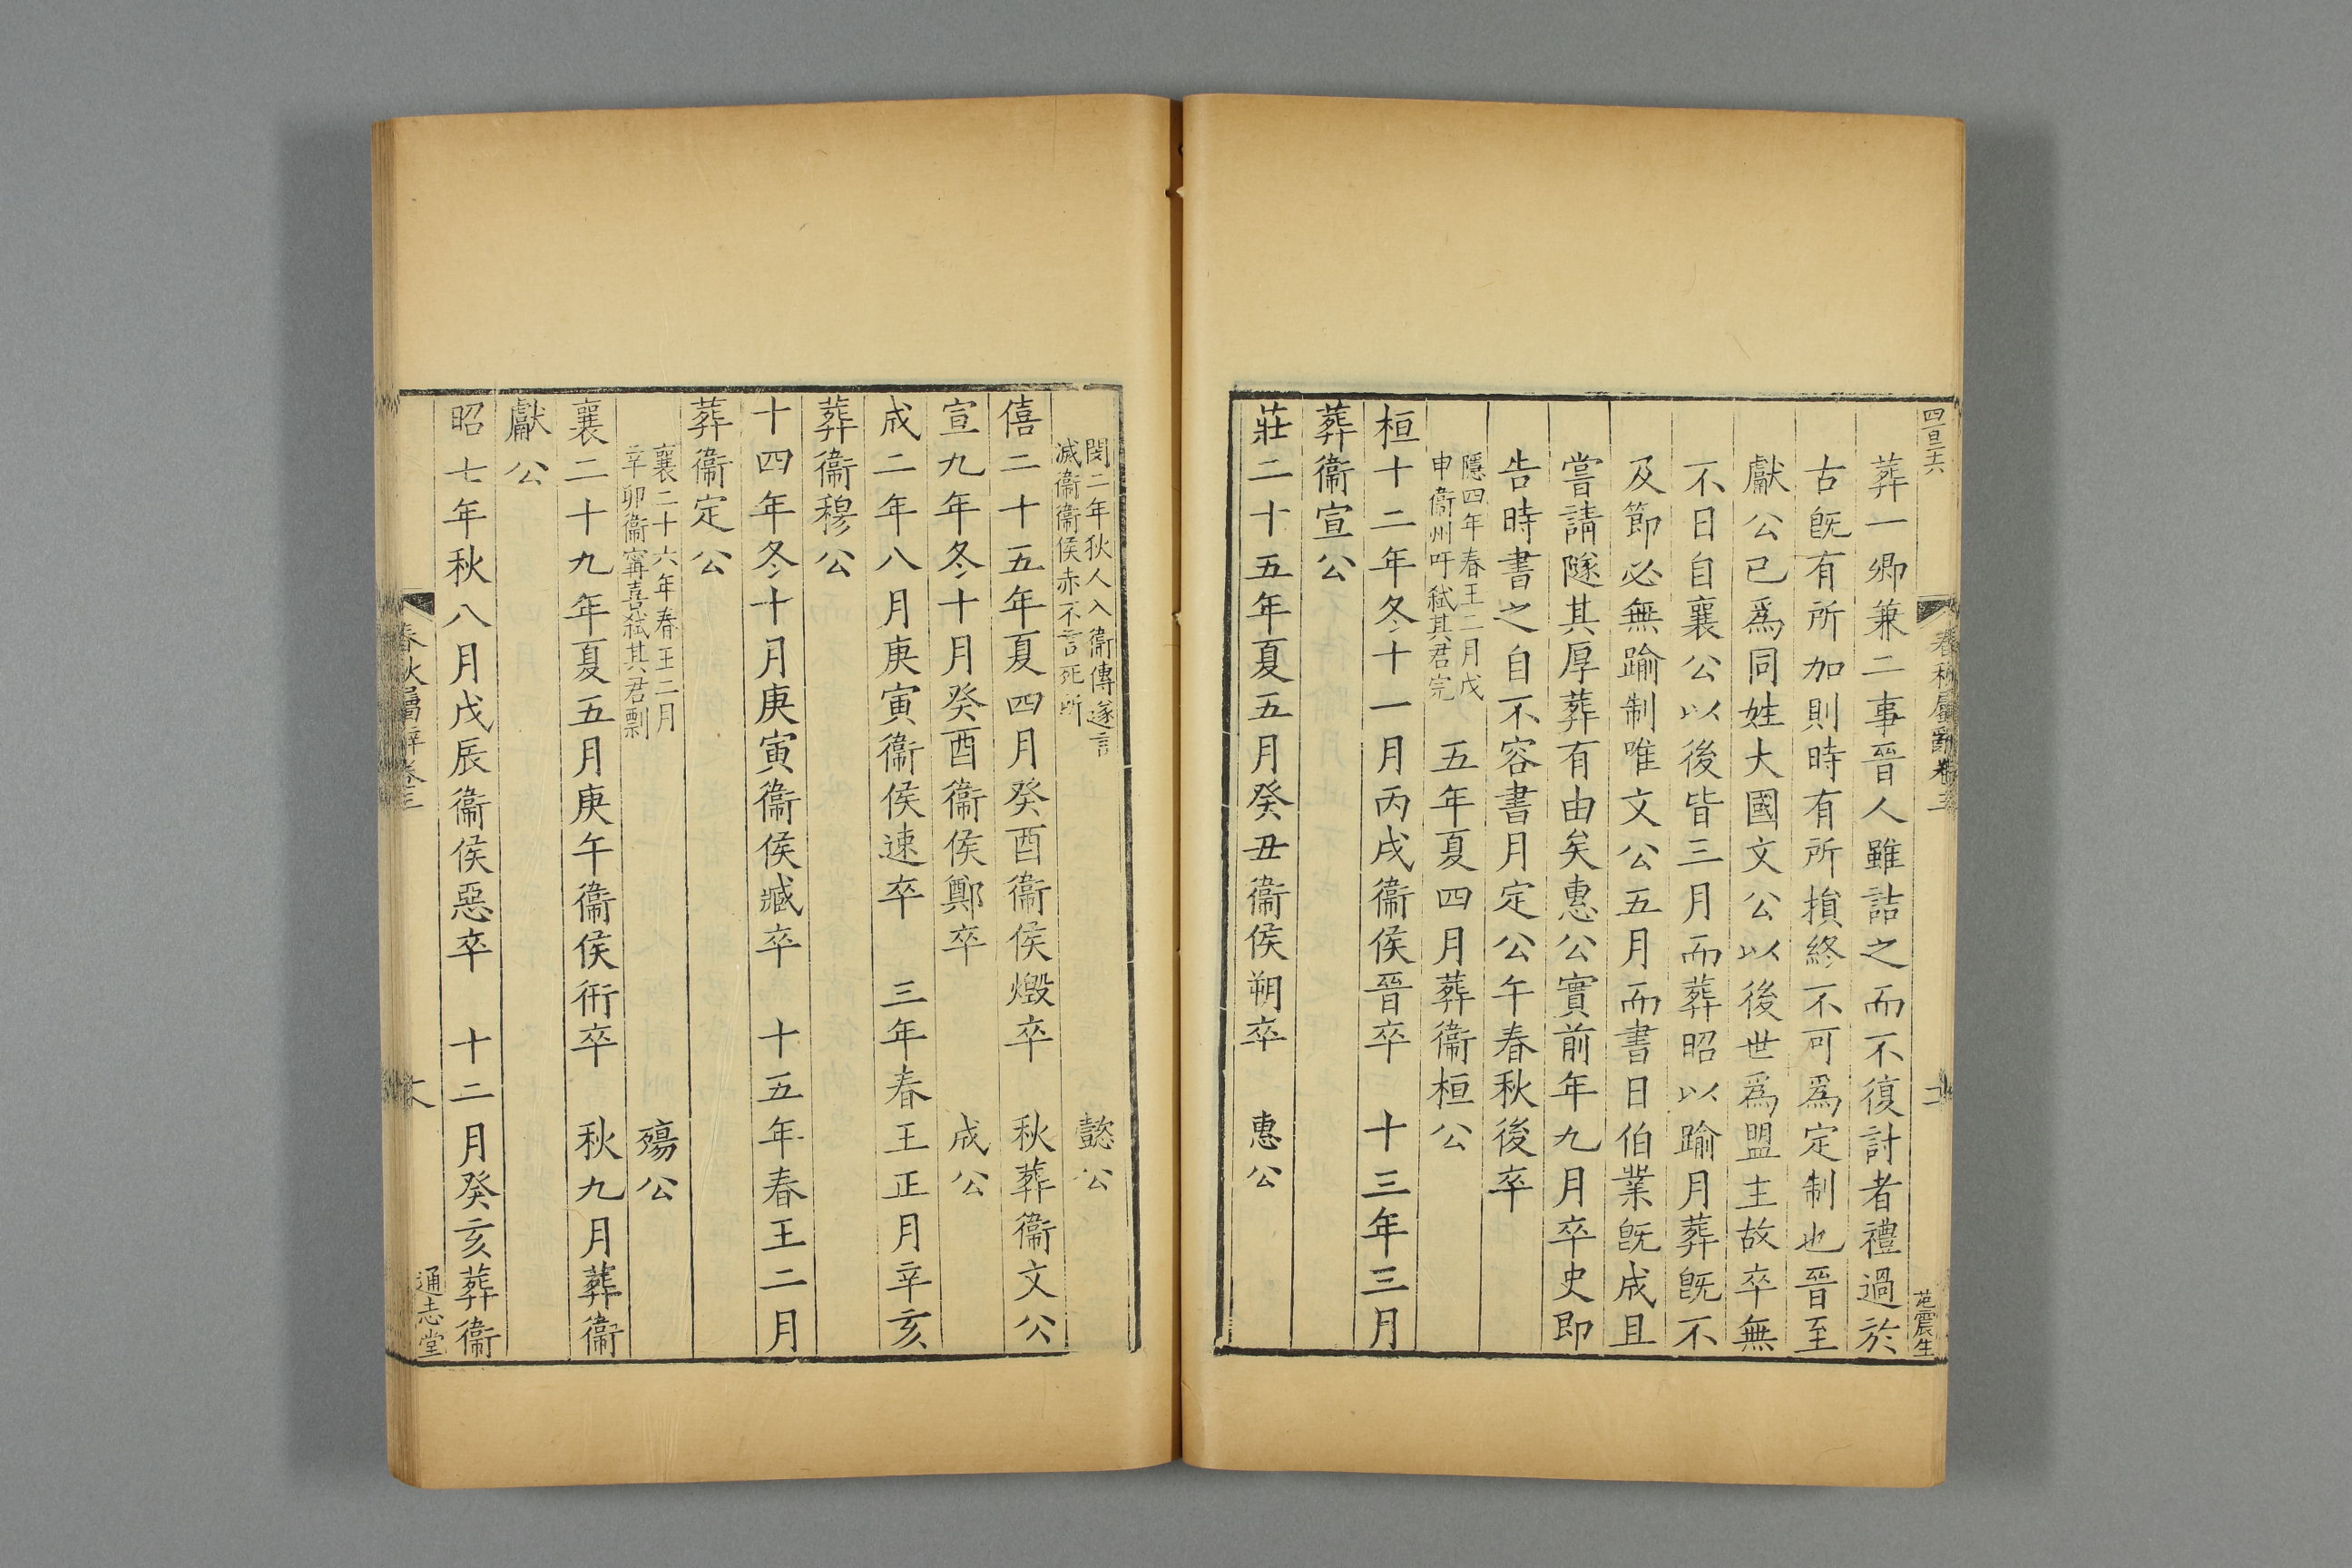 四百十六
春秋屬辭卷三
范震生
葬一卿兼二事晉人雖詰之而不復討者禮過於
古旣有所加則時有所損終不可爲定制也晉至
獻公已爲同姓大國文公以後世爲盟主故卒無
不日自襄公以後皆三月而葬昭以踰月葬旣不
及節必無踰制唯文公五月而書日伯業旣成且
嘗請隧其厚葬有由矣惠公實前年九月卒史即
告時書之自不容書月定公午春秋後卒
隱四年春王二月戊
申衞州吁弑其君完
五年夏四月葬衞桓公
桓十二年冬十一月丙戌衞侯晉卒 十三年三月
葬衞宣公
莊二十五年夏五月癸丑衞侯朔卒 惠公
閔二年狄人入衞傳遂言
滅衞衞侯赤不言死所
懿公
僖二十五年夏四月癸酉衞侯燬卒 秋葬衞文公
宣九年冬十月癸酉衞侯鄭卒 成公
成二年八月庚寅衞侯速卒 三年春王正月辛亥
葬衞穆公
十四年冬十月庚寅衞侯臧卒 十五年春王二月
葬衞定公
襄二十六年春王二月
辛卯衞寗喜弑其君剽
殤公
襄二十九年夏五月庚午衞侯衎卒 秋九月葬衞
獻公
昭七年秋八月戊辰衞侯惡卒 十二月癸亥葬衞
春秋屬辭卷三
通志堂